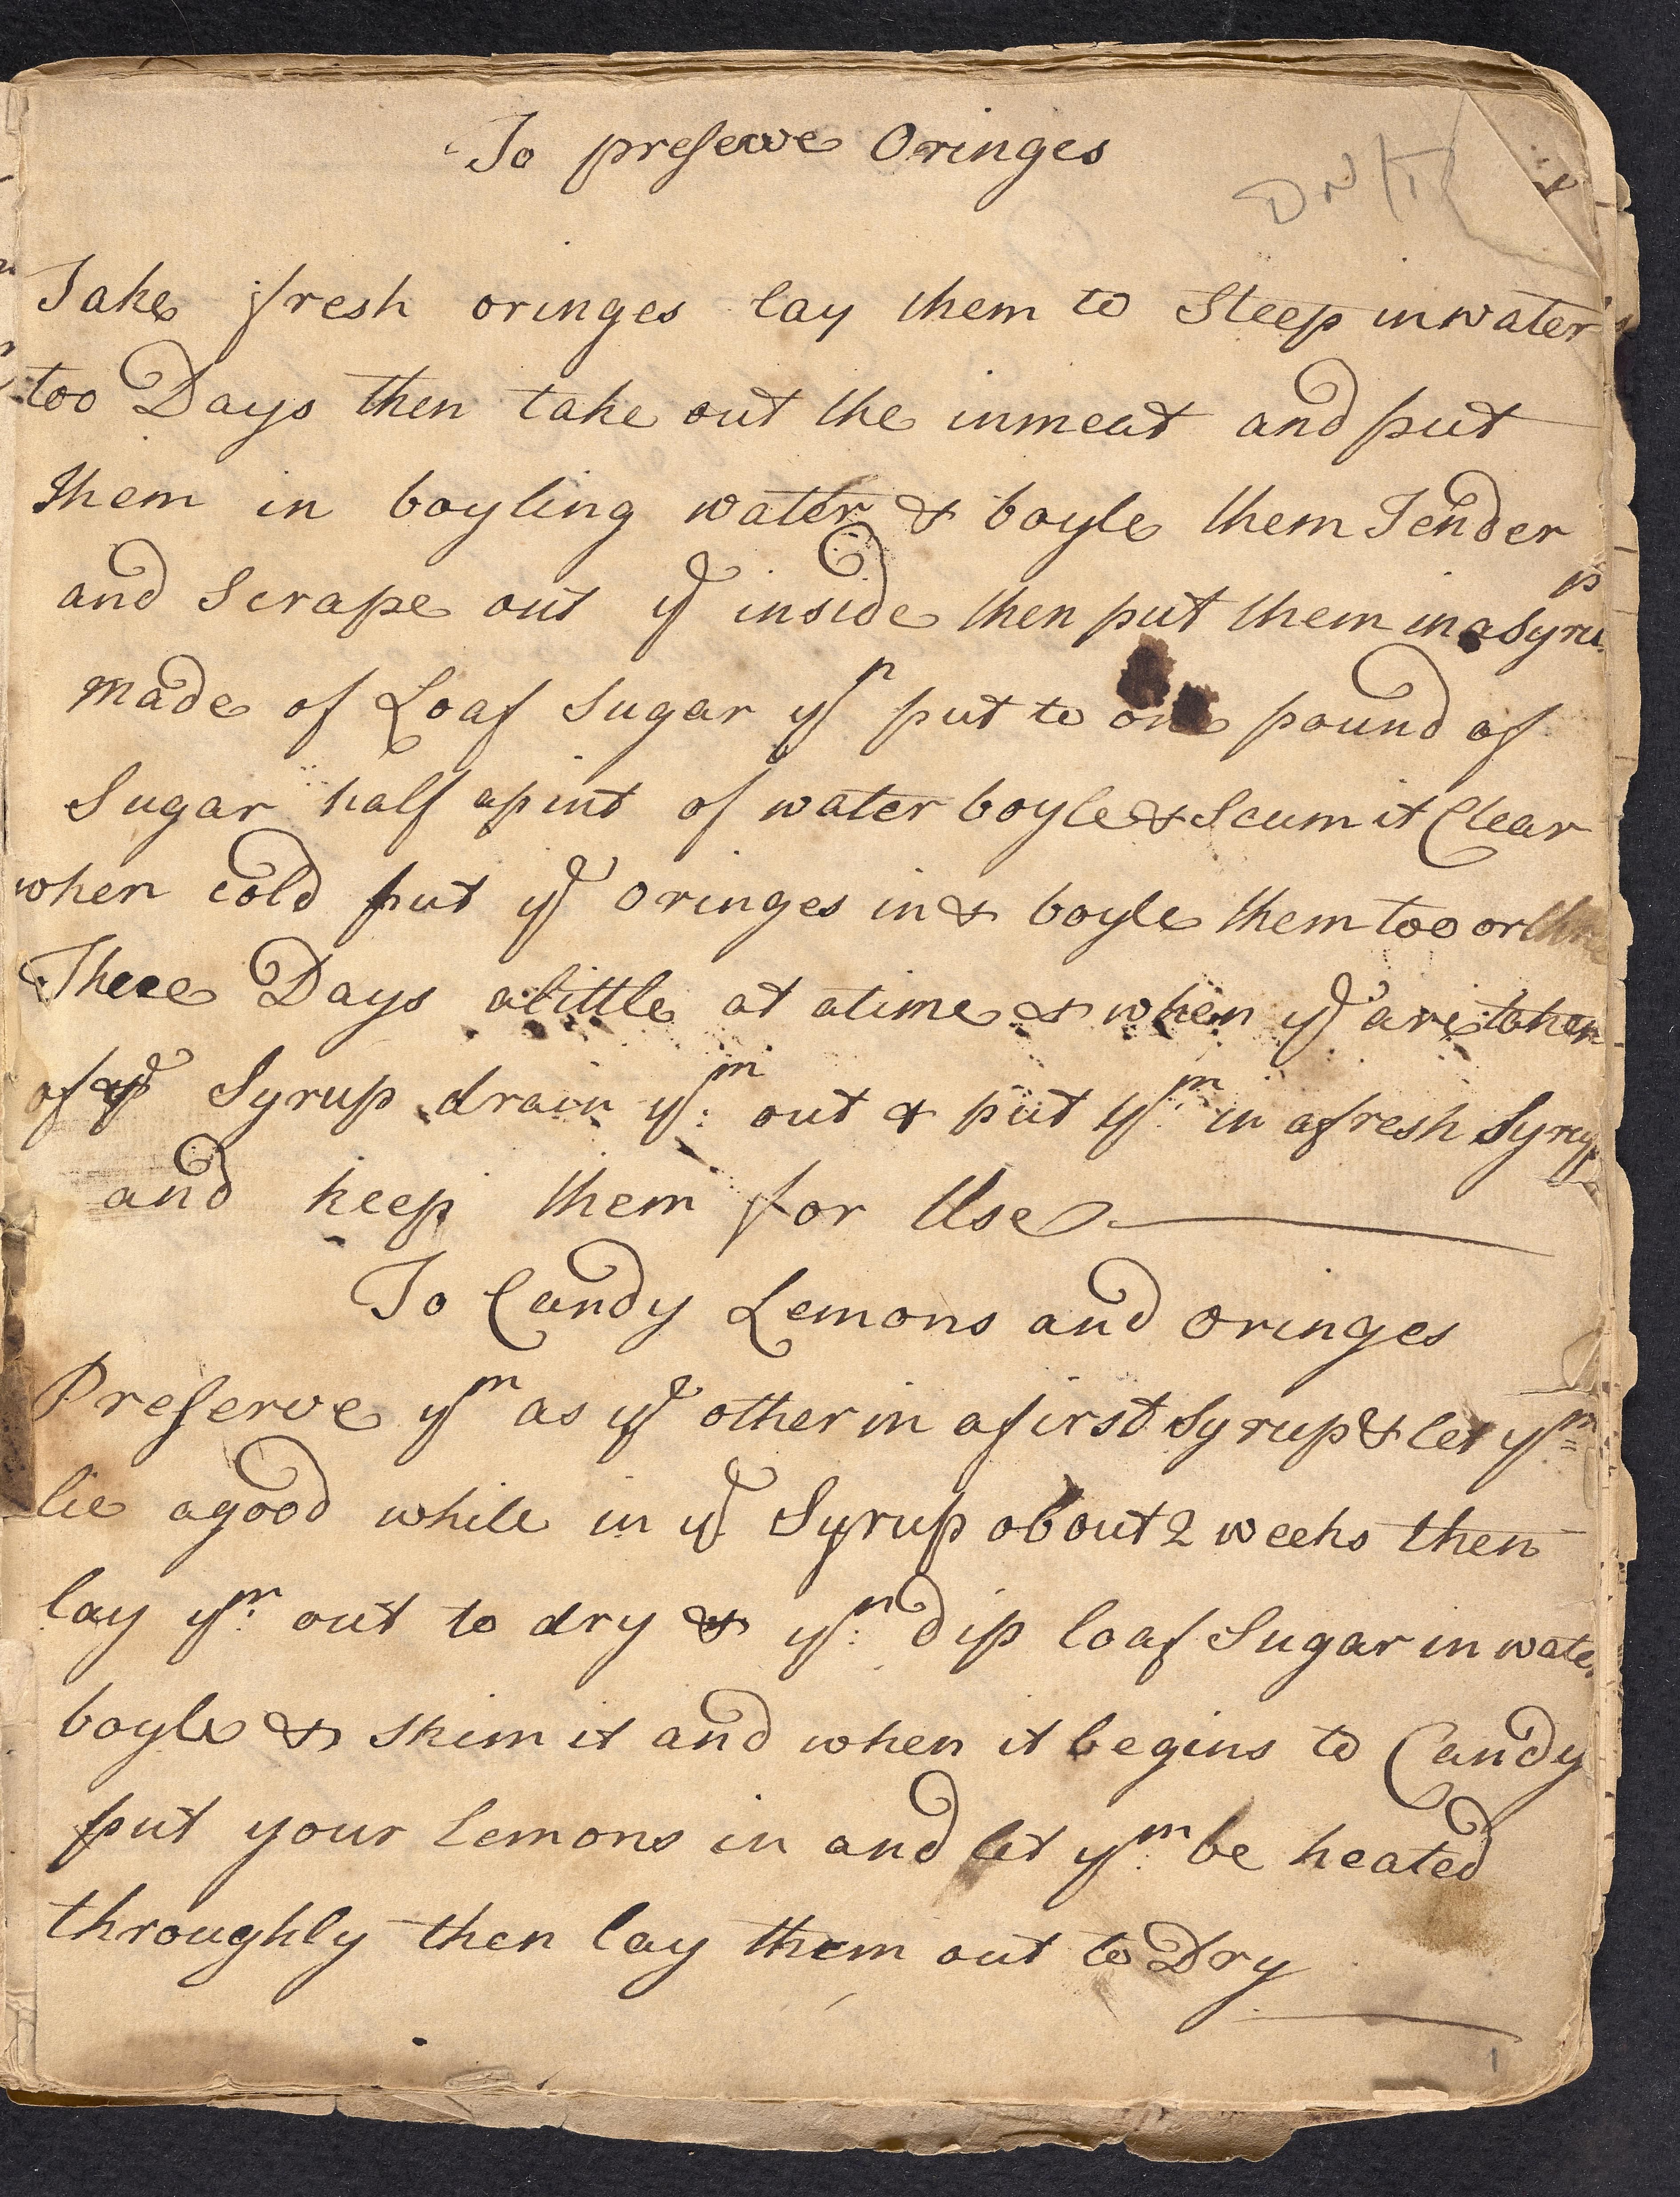 To preserve Oringes
Take fresh oringes lay them to Steep in water
too Days then take out the inmeat and put
them in boyling water & boyle them Tender
and Scrape out ye inside then put them in a Syrup
made of Loaf Sugar yn put to one pound of
Sugar half a pint of water boyle & Scum it Clear
when cold put ye oringes in & boyle them too or
Three Days a little at a time & when ye are
of ye Syrup drain ym: out & put ym: in a fresh Syrup
and keep them for Use
To Candy Lemons and oringes
Preserve ym as ye other in a first Syrup & let ym
lie a good while in ye Syrup about 2 weeks then
lay ym: out to dry & yn: dip loaf Sugar in water
boyle & skim it and when it begins to Candy
put your lemons in and let ym: be heated
throughly then lay them out to Dry
1